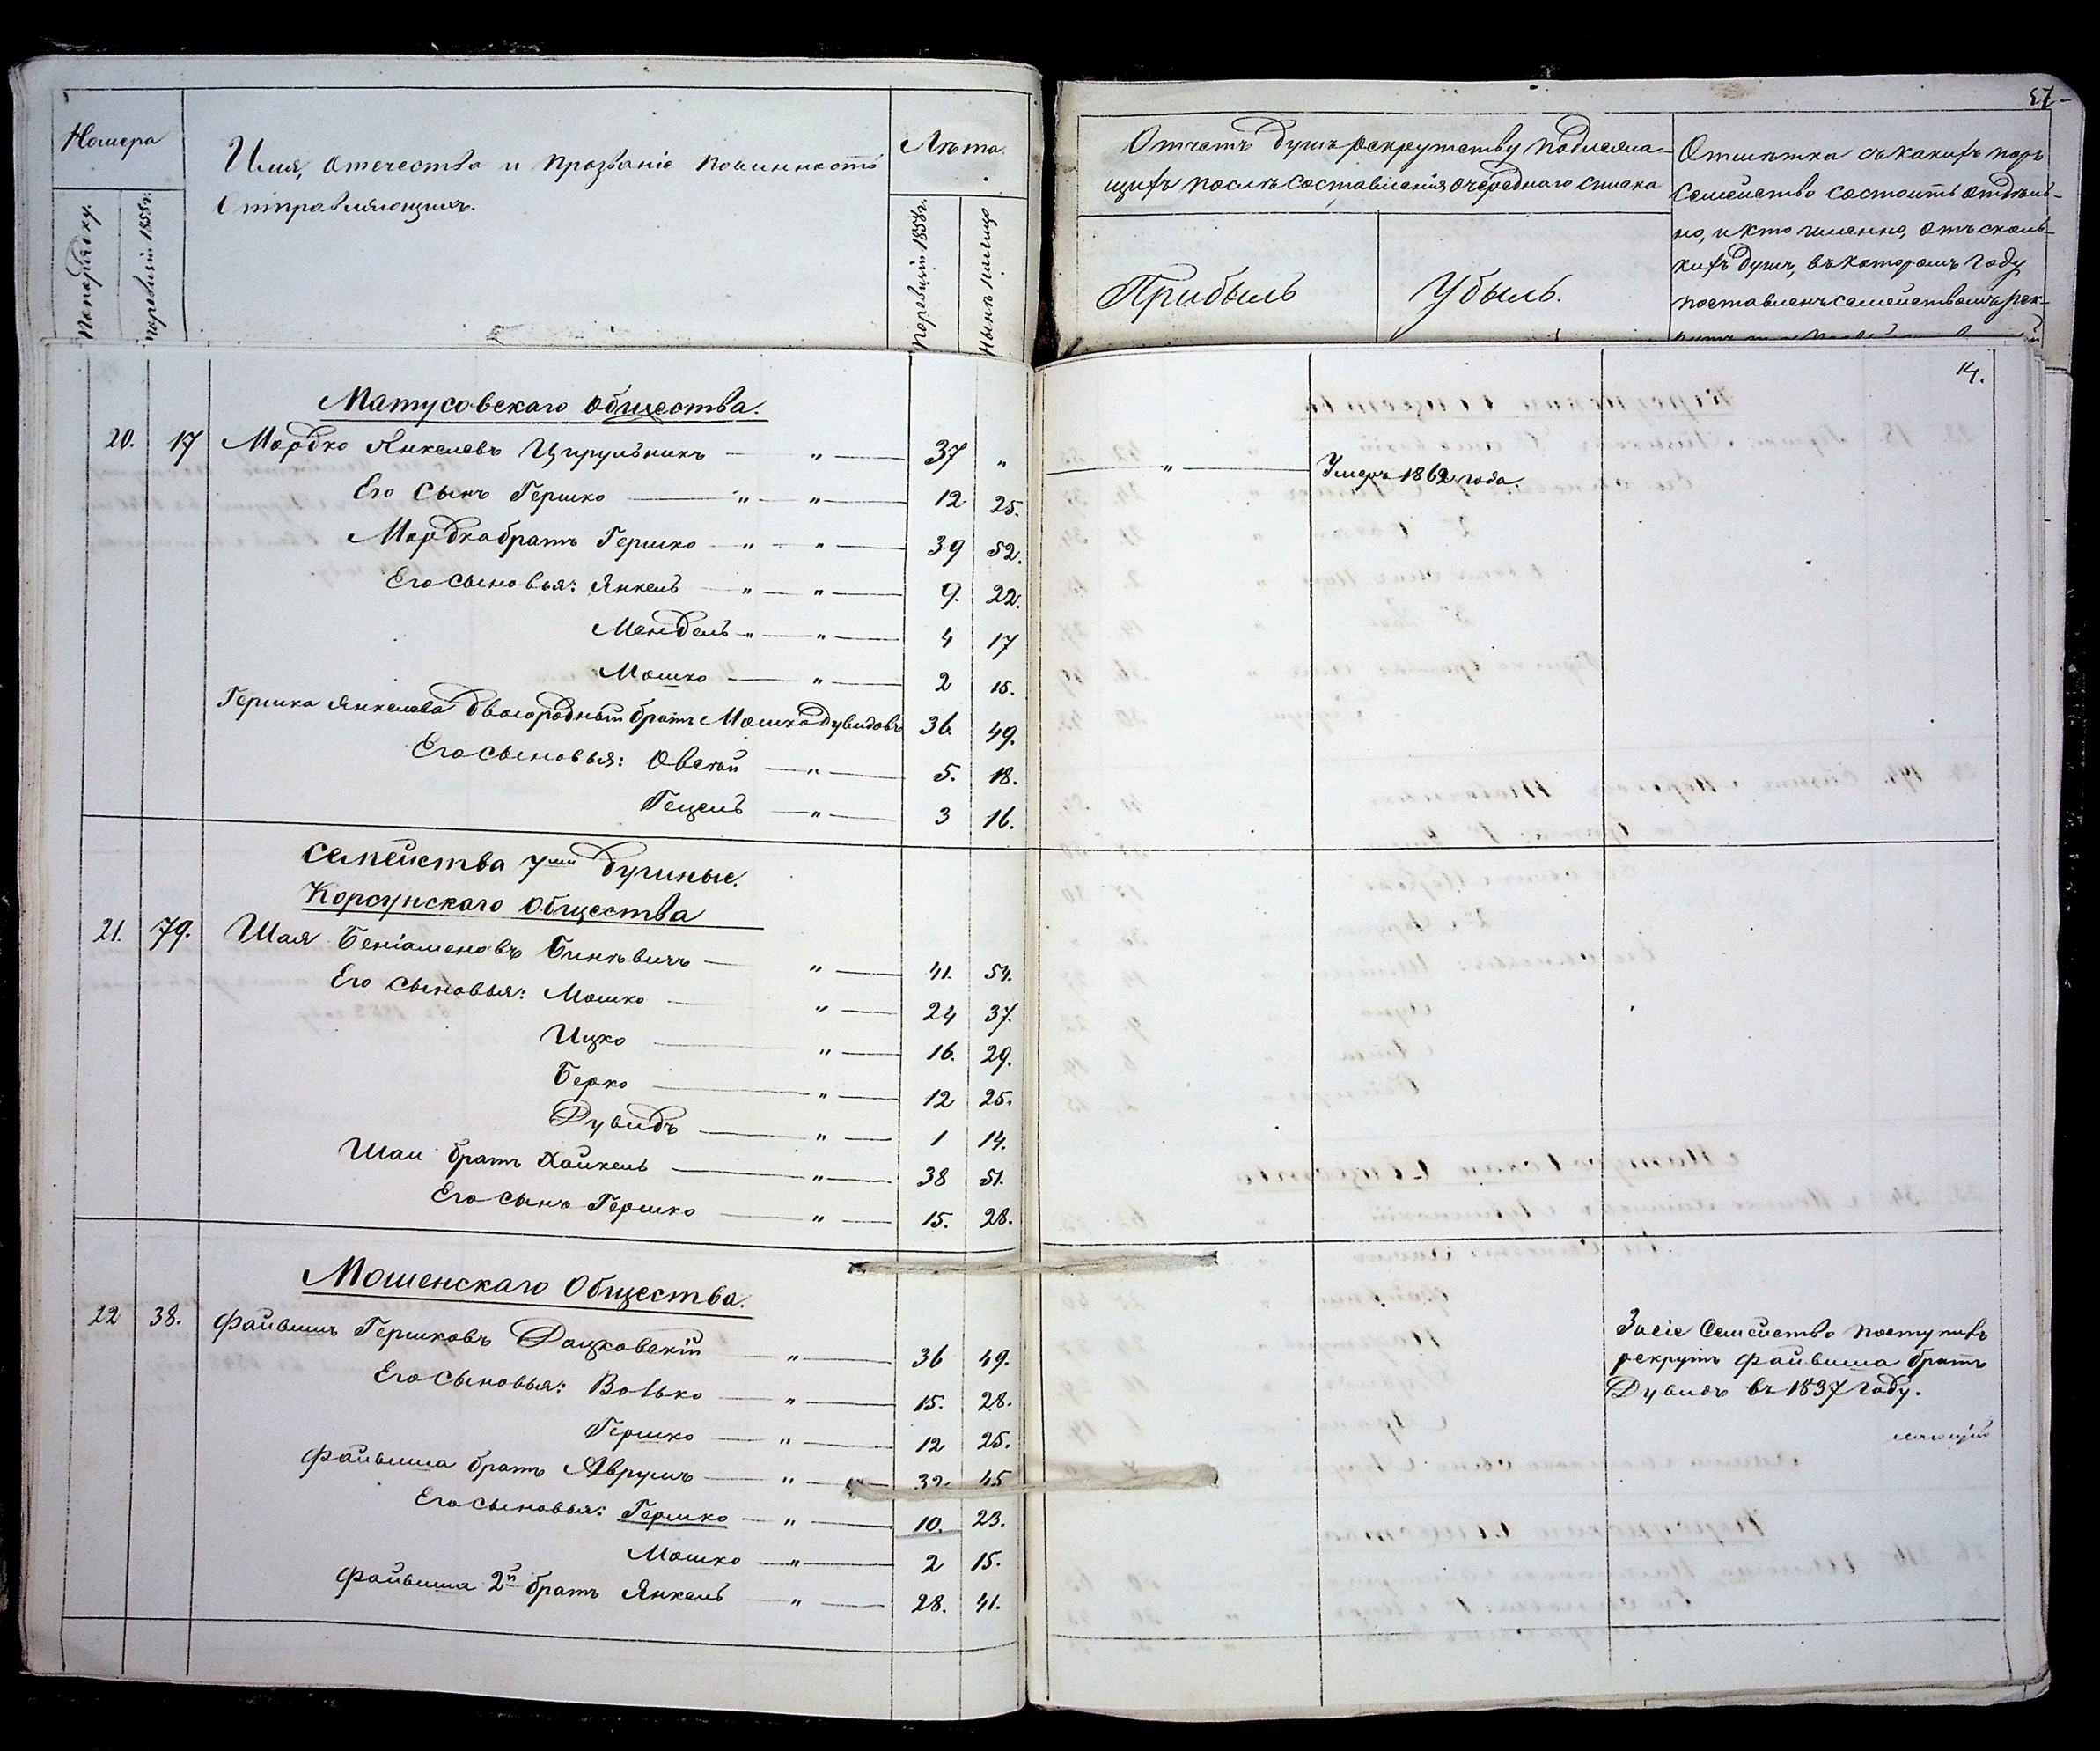 Номера
По порядку.
По ревизіи 1858 г.
Имя, отечество и прозваніе повинность
отправляющихъ.
Лѣта.
По ревизіи 1858 г.
Нынѣ на лицо
57
Отчетъ душъ рекрутству подлежа-
щихъ послѣ составленія очереднаго списка
Прибыль
Убыль.
Отмѣтка съ какихъ поръ
семейство состоитъ отдѣль-
но, и кто именно, отъ сколь-
кихъ душъ, въ которомъ году
поставленъ семействомъ рек-
14.
Матусовскаго Общества.
20. 17 Мордко Янкелевъ Цирульникъ — " — 37 "
— " — Умеръ 1862 года.
Его сынъ Гершко — " " — 12 25.
Мордка братъ Гершко — " — " — 39 52.
Его сыновья: Янкель — " — " — 9. 22.
Мендель — " — " — 4 17
Мошко — " — 2 15.
Гершка Янкелева двоюродный братъ Мошко Дувидовъ 36. 49.
Его сыновья: Овсей — " — 5. 18.
Гецель — " — 3 16.
Семейства 7ми душные.
Корсунскаго Общества
21. 79. Шая Беніаменовъ Бинѣвичъ — " — 41. 54.
Его сыновья: Мошко — " — 24 37.
Ицко — " — 16. 29.
Берко — " — 12 25.
Дувидъ — " — 1 14.
Шаи братъ Хайкель — " — 38 51.
Его сынъ Гершко — " — 15. 28.
Мошенскаго Общества.
22 38. Файвишъ Гершковъ Дацковскій — " — 36 49.
Его сыновья: Волько — " — 15. 28.
Гершко — " — 12 25.
Файвиша братъ Аврумъ — " — 32. 45
Его сыновья: Гершко — " — 10. 23.
Мошко — " — 2 15.
Файвиша 2й братъ Янкель — " — 28. 41.
За сіе семейство поступилъ
рекрутъ Файвиша братъ
Дувидъ въ 1837 году.